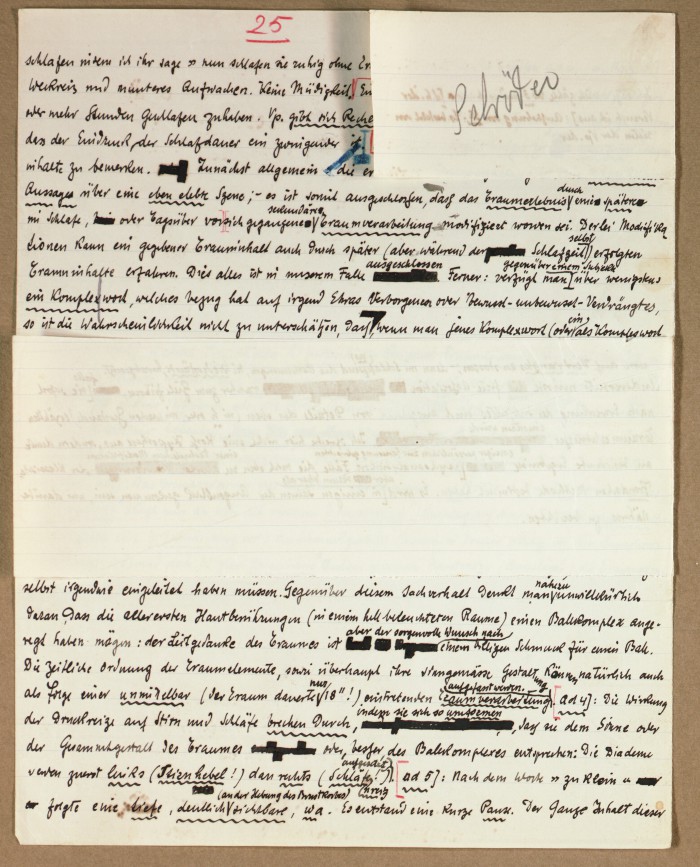 25
schlafen indem ich ihr sage » nun schlafen sie ruhig ohne
Schrötter
Weckreiz und munteres Aufwachen. Keine Müdigkeit.
oder mehr Stunden geschlafen zu haben. Vp. gibt sich
dass der Eindruck der Schlafdauer ein zwingender ist
inhalte zu bemerken. Zunächst allgemein
Aussagen über eine eben erlebte Szene; – es ist somit ausgeschlossen, dass das Traumerlebnis durch eine spätere
im Schlafe, oder Tagsüber vor sich gegangene sekundäre Traumverarbeitung modifiziert worden sei. Derlei Modifika
tionen kann ein gegebener Trauminhalt auch durch später (aber während der Schlafzeit selbst) erfolgten
Trauminhalte erfahren. Dies alles ist in unserem Falle ausgeschlossen. Ferner: verfügt man gegenüber einem Subjekte über wenigstens
ein Komplexwort, welches bezug hat auf irgend Etwas Verborgenes oder Bewusst-unbewusst-Verdrängtes,
so ist die Wahrscheinlichkeit nicht zu unterschätzen, dass, wenn man jenes Komplexwort (oder ein, als Komplexwort
selbst irgendwie eingeleitet haben müssen. Gegenüber diesem Sachverhalt denkt man unwillkürlich
daran, dass die allerersten Hautberührungen (in einem hell beleuchteten Raume) einen Ballkomplex ange-
regt haben mögen: der Leitgedanke des Traumes ist aber der sorgenvolle Wunsch nach einem billigen Schmuck für einen Ball.
Die zeitliche Ordnung der Traumelemente, sowie überhaupt ihre Gestalt, können natürlich auch
als Folge einer unmittelbar (der Traum dauerte nur 18"!) eintretenden Traumverarbeitung aufgefasst werden. [ad 4]: Die Wirkung
der Druckreize auf Stirn und Schläfe brechen durch, indem sie sich so umformen, dass sie dem Sinne oder
der Gesammtgestalt des Traumes oder, besser des Ballkomplexes entsprechen: Die Diademe
werden zuerst links (Teinthebel!) dan rechts (Schläfe!) [ad 5]: Nach dem Worte » zu klein «
folgte eine tiefe, deutlich (an der Hebung des Brustkorbes) sichtbare, Es entstand eine kurze Pause. Der Ganze Inhalt dieser